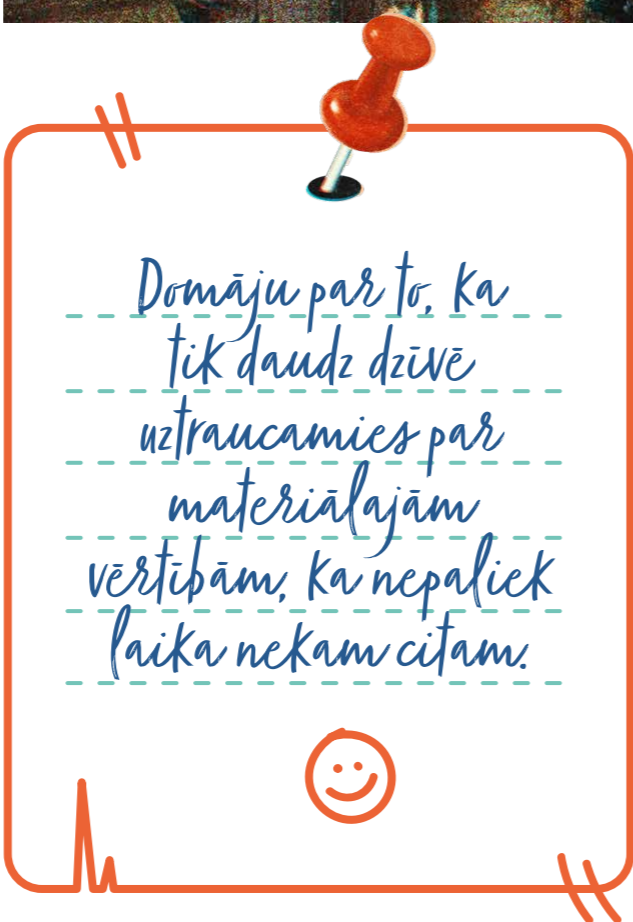 Domāju par to, ka
tik daudz dzīvē
uztraucamies par
materiālajām
vērtībām, ka nepaliek
laika nekam citam.